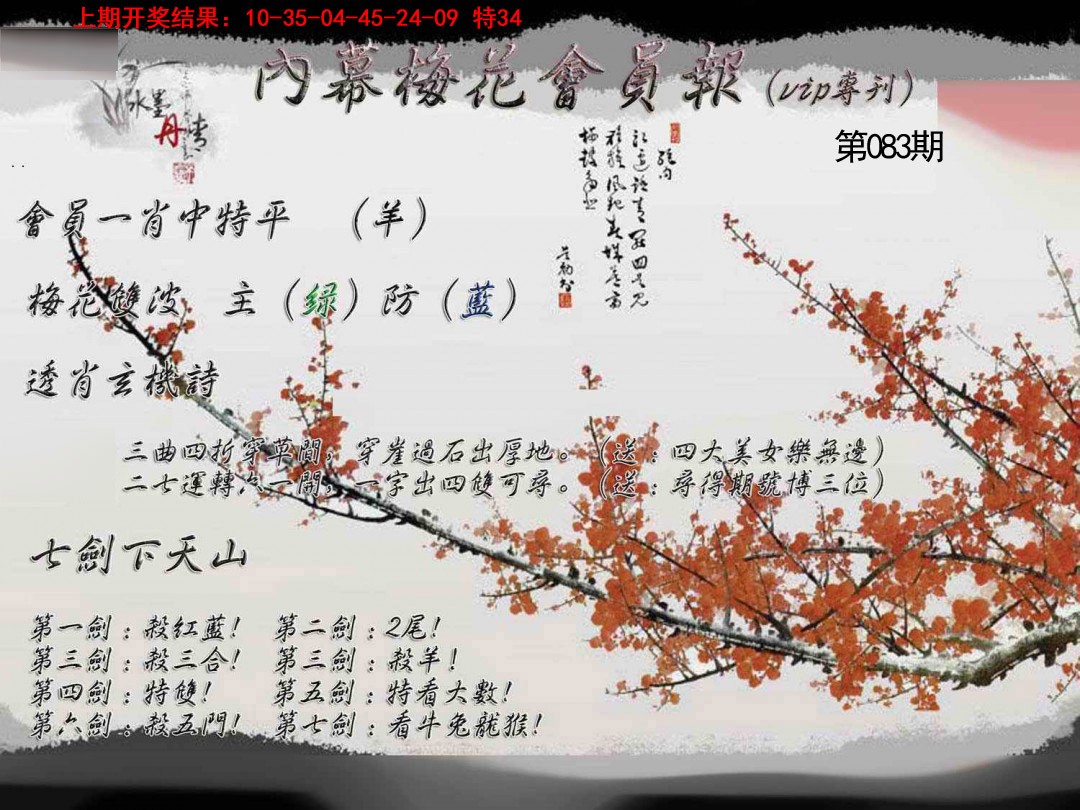 上期开奖结果：10-35-04-45-24-09 特34
內幕梅花會員報（vip專刊）
水墨
丹情
第083期
會員一肖中特平 （羊）
梅花雙波 主（緑）防（藍）
透肖玄機詩
三曲四折穿草間，穿崖過石出厚地。（送：四大美女樂無邊）
二七運轉六一開，一字出四雙可尋。（送：尋得期號博三位）
七劍下天山
第一劍：殺紅藍！ 第二劍：2尾！
第三劍：殺三合！ 第三劍：殺羊！
第四劍：特雙！ 第五劍：特看大數！
第六劍：殺五門！ 第七劍：看牛兔龍猴！